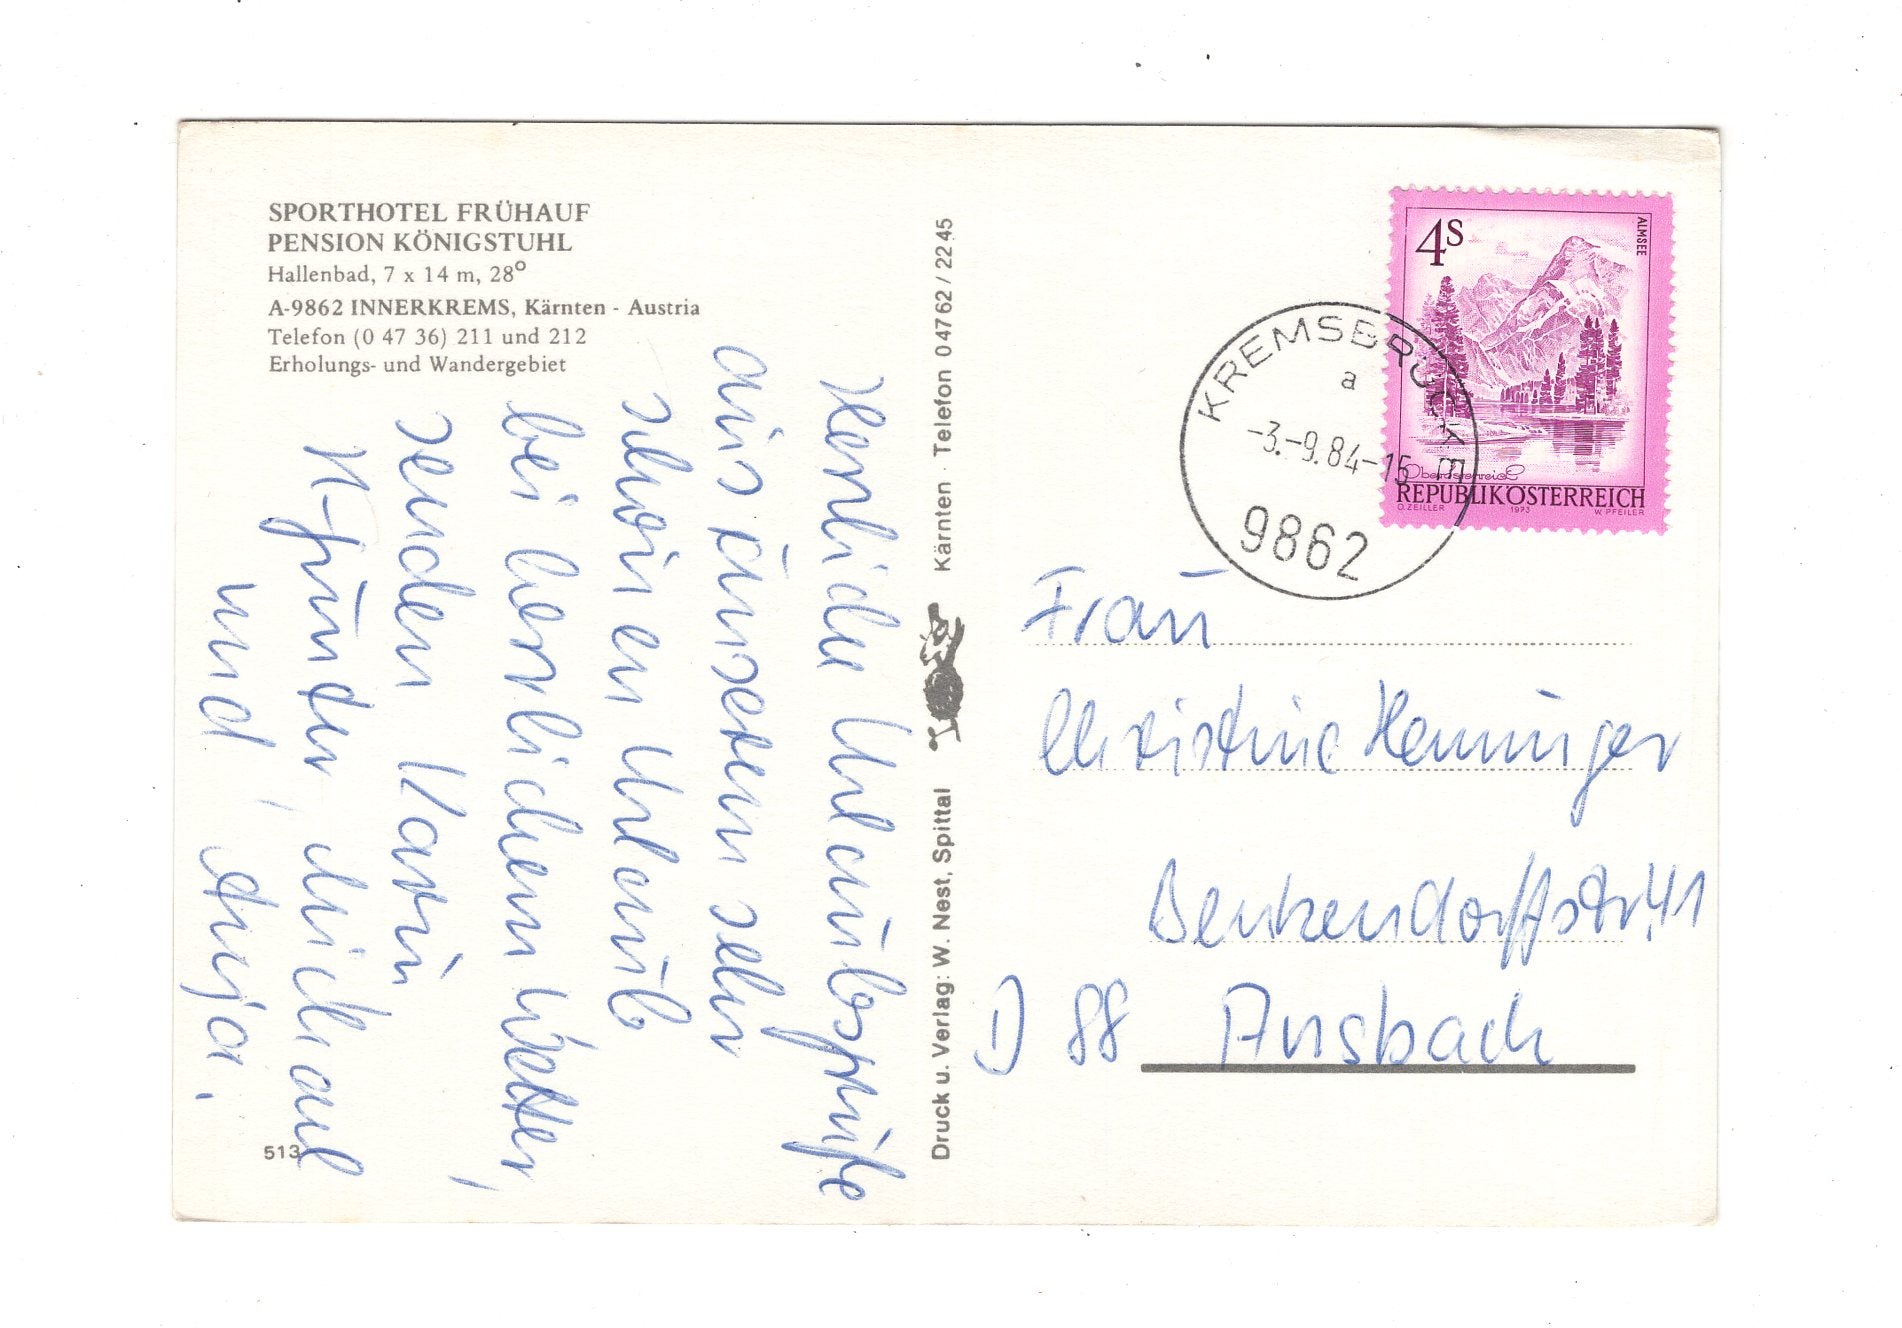 SPORTHOTEL FRÜHAUF
PENSION KÖNIGSTUHL
Hallenbad, 7 x 14 m, 28°
A-9862 INNERKREMS, Kärnten - Austria
Telefon (0 47 36) 211 und 212
Erholungs- und Wandergebiet
Herzliche Urlaubsgrüße
aus unserem sehr
schönen Urlaub
bei herrlichem Wetter,
senden Karin,
Günter, Michael
und Anja.
513
Druck u. Verlag: W. Nest, Spittal Kärnten · Telefon 0 47 62 / 22 45
4S
ALMSEE
Oberösterreich
REPUBLIK ÖSTERREICH
O. ZEILLER 1973 W. PFEILER
KREMSBRÜCKE
a
-3.-9.84-15
9862
Frau
Christine Henninger
Benkendorffstr. 41
D 88 Ansbach